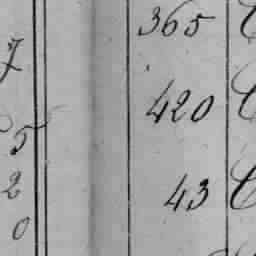 7
365
5
420
2
43
0